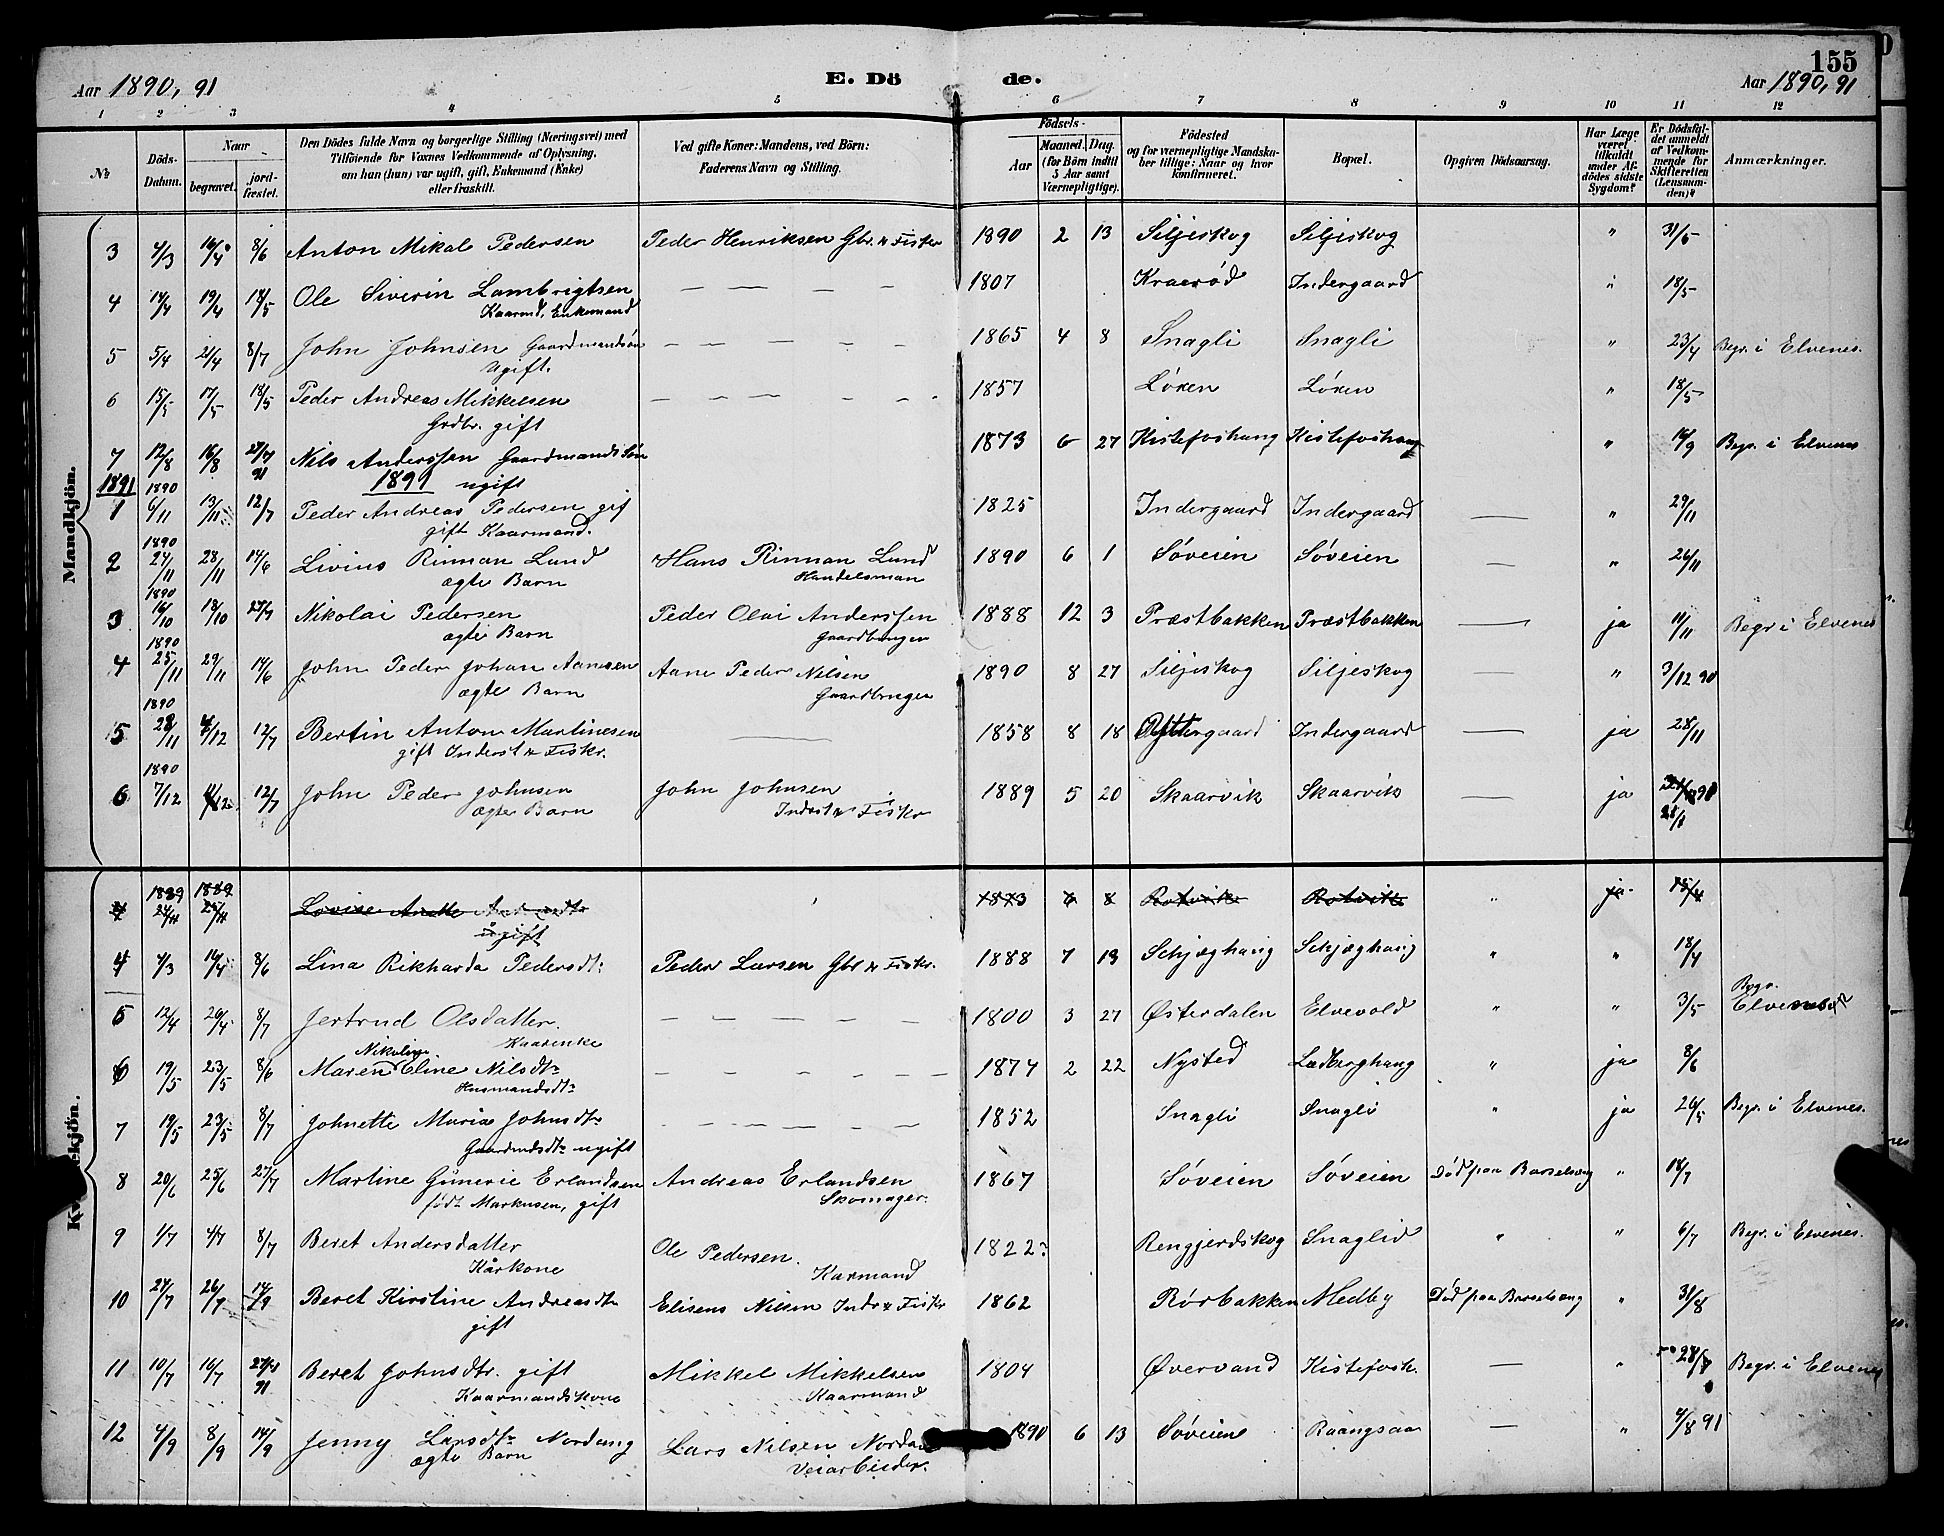 155
Aar 1890, 91 E. Dö de. Aar 1890, 91
1 2 3 4 5 6 7 8 9 10 11 12
No Döds-Datum. Naar begravet. jordfæstet. Den Dödes fulde Navn og borgerlige Stilling (Næringsvei) med Tilföiende for Voxnes Vedkommende af Oplysning, om han (hun) var ugift, gift, Enkemand (Enke) eller fraskilt. Ved gifte Koner: Mandens, ved Börn: Faderens Navn og Stilling. Födsels- Aar Maaned. Dag. (for Börn indtil 5 Aar samt Værnepligtige). Födested og for værnepligtige Mandskaber tillige: Naar og hvor konfirmeret. Bopæl. Opgiven Dödsaarsag. Har Læge været tilkaldt under Afdödes sidste Sygdom? Er Dödsfaldet anmeldt af Vedkommende for Skifteretten (Lensmanden)? Anmærkninger.
Mandkjön.
3 4/3 16/4 8/6 Anton Mikal Pedersen Peder Henriksen Gbr. & Fisker 1890 2 13 Siljeskog Siljeskog " 31/5
4 14/4 19/4 18/5 Ole Siverin Lambrigtsen — — — — 1807 Kraerød Indergaard " 18/5
Kaarmd, Enkemand
5 5/4 21/4 8/7 John Johnsen Gaardmandsøn — — — — — 1865 4 8 Snagli Snagli " 23/4 Begr. i Elvenes.
Ugift.
6 15/5 17/5 18/5 Peder Andreas Mikkelsen — — — — — 1857 Løken Løken " 18/5
Grdbr. gift
7 12/8 16/8 27/7 91 Nils Anderssen Gaardmandssøn 1873 6 27 Kistefoshaug Kistefoshaug " 14/9 Begr. i Elvenes
1891 1891 ugift
1 1890 6/11 13/11 12/7 Peder Andreas Pedersen gif 1825 Indergaard Indergaard — " 29/11
gift Kaarmand.
2 1890 24/11 28/11 14/6 Livius Rinnan Lund Hans Rinnan Lund 1890 6 1 Søveien Søveien — " 26/11
ægte Barn Handelsman
3 1890 16/10 18/10 27/7 Nikolai Pedersen Peder Olai Anderssen 1888 12 3 Præstbakken Præstbakken — ja 11/11 Begr i Elvenes
ægte Barn Gaardbruger
4 1890 25/11 29/11 14/6 John Peder Johan Aanesen Aane Peder Nilsen 1890 8 27 Siljeskog Siljeskog — " 3/12 90
ægte Barn Gaardbruger
5 1890 28/11 4/12 12/7 Bertin Anton Martinesen — 1858 8 18 gaard Indergaard — ja 28/11
gift Inderst & Fiskr.
6 1890 7/12 12 12/7 John Peder Johnsen John Johnsen 1889 5 20 Skaarvik Skaarvik — ja
ægte Barn Inderst & Fiskr
Kvindekjön.
1889 24/4 1889 25/4 Lovise 1873 6 8 Rotvik Rotvik " ja 15/4
ugift
4 4/3 14/4 8/6 Lina Rikharda Pedersdtr Peder Larsen Gbr & Fiskr. 1888 7 13 Schjæghaug Schjæghaug " " 18/4
5 12/4 26/4 8/7 Jertrud Olsdatter. — — — — — 1800 3 27 Østerdalen Elvevold " " 3/5 Begr. Elvenes
Kaarenke
6 19/5 23/5 8/6 Maren Nikoline Eline Nilsdtr — — — — — 1874 2 22 Nysted Ladberghaug " ja 8/6
Husmandsdtr
7 19/5 23/5 8/7 Johnette Maria Johnsdtr — — — — — 1852 Snagli Snagli " ja 26/5 Begr. i Elvenes.
Gaardmdsdtr ugift
8 20/6 25/6 27/7 Martine Günerie Erlandsen Andreas Erlandsen 1867 Søveien Søveien Død paa Barselseng " 18/7
født Markusen, gift Skomager.
9 1/7 4/7 8/7 Beret Andersdatter Ole Pedersen. 1822? Rengjerdskog Snaglid " " 6/7 Begr. i Elvenes.
Kårkone Karmand
10 24/7 26/7 14/9 Beret Kirstine Andreasdtr Elisens Nilsen Indr & Fiskr 1862 Rørbakken Medby Død paa Barselseng " 31/8
gift
11 10/7 16/7 27/7 91 Beret Johnsdtr. gift Mikkel Mikkelsen 1804 Øvervand Kistefosh. — " 28/7 Begr. i Elvenes
Kaarmandskone Kaarmand
12 4/9 8/9 14/9 Jenny Larsdtr Nordaug Lars Nilsen Nordau 1890 6 13 Søveien Raangsaa — " 4/8 91
ægte Barn Veiarbeider.